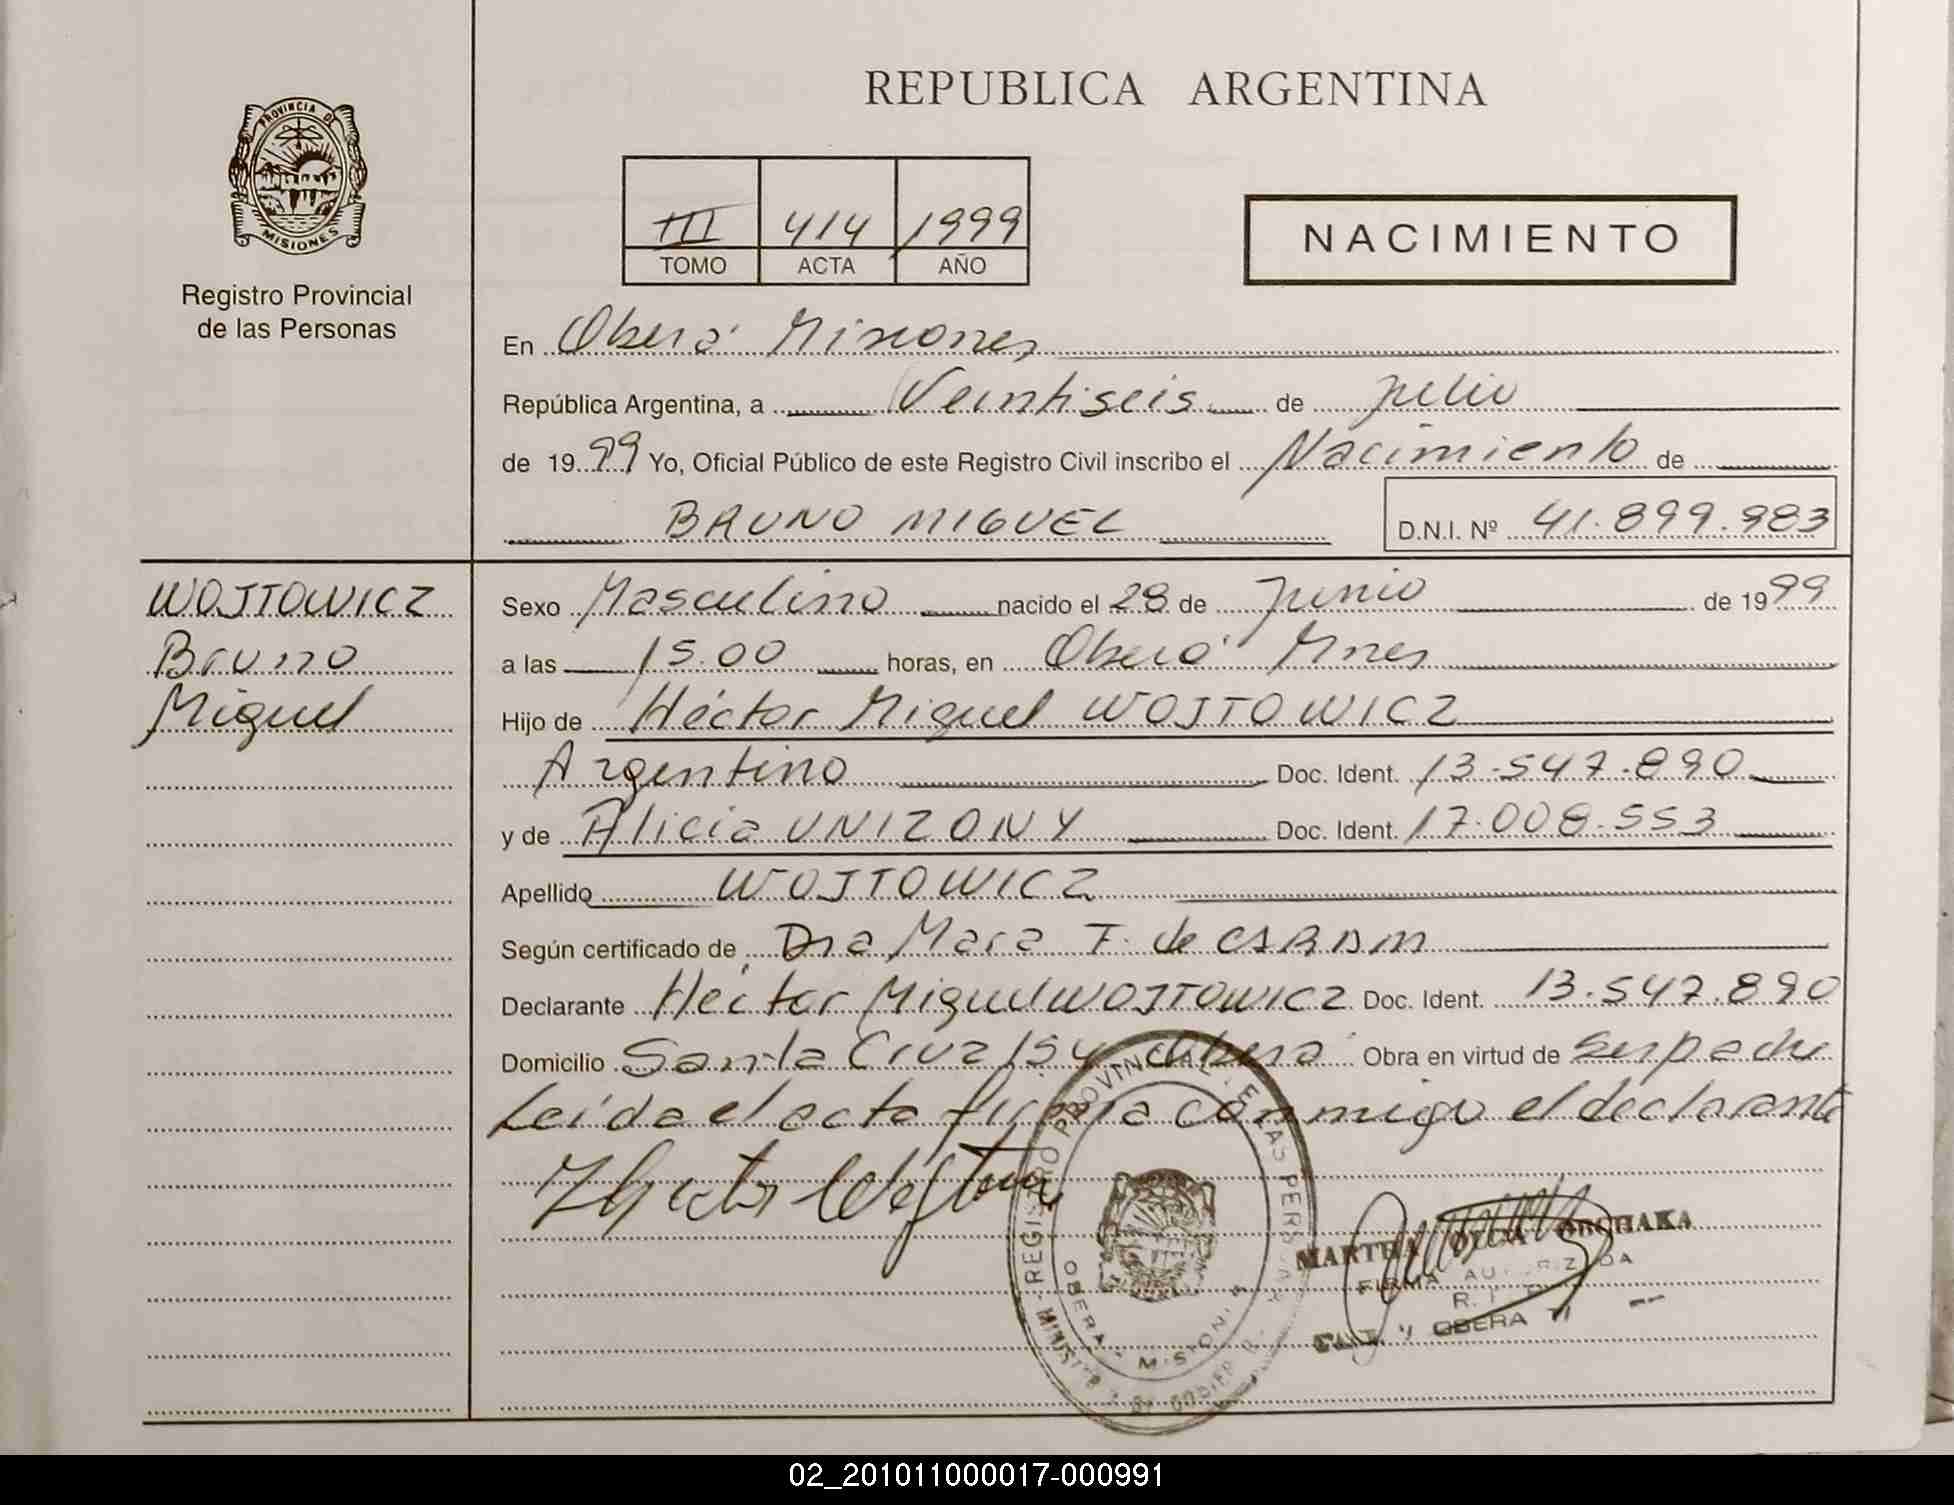 PROVINCIA DE
MISIONES
Registro Provincial
de las Personas
REPUBLICA ARGENTINA
III 414 1999
TOMO ACTA AÑO
NACIMIENTO
En Oberá Misiones
República Argentina, a Veintiseis de Julio
de 1999 Yo, Oficial Público de este Registro Civil inscribo el Nacimiento de
BRUNO MIGUEL D.N.I. Nº 41.899.983
WOJTOWICZ
Bruno
Miguel
Sexo Masculino nacido el 28 de Junio de 1999
a las 15.00 horas, en Oberá Mnes
Hijo de Héctor Miguel WOJTOWICZ
Argentino Doc. Ident. 13.547.890
y de Alicia UNIZONY Doc. Ident. 17.008.553
Apellido WOJTOWICZ
Según certificado de Dra Mara F. de
Declarante Héctor Miguel WOJTOWICZ Doc. Ident. 13.547.890
Domicilio Santa Cruz 154 Oberá Obra en virtud de ser padre
Leída el acta firma conmigo el declarante
REGISTRO PROVINCIAL DE LAS PERSONAS
OBERA MISIONES
MARTHA OLGA ORCHAKA
FIRMA AUTORIZADA
OBERA
02_201011000017-000991